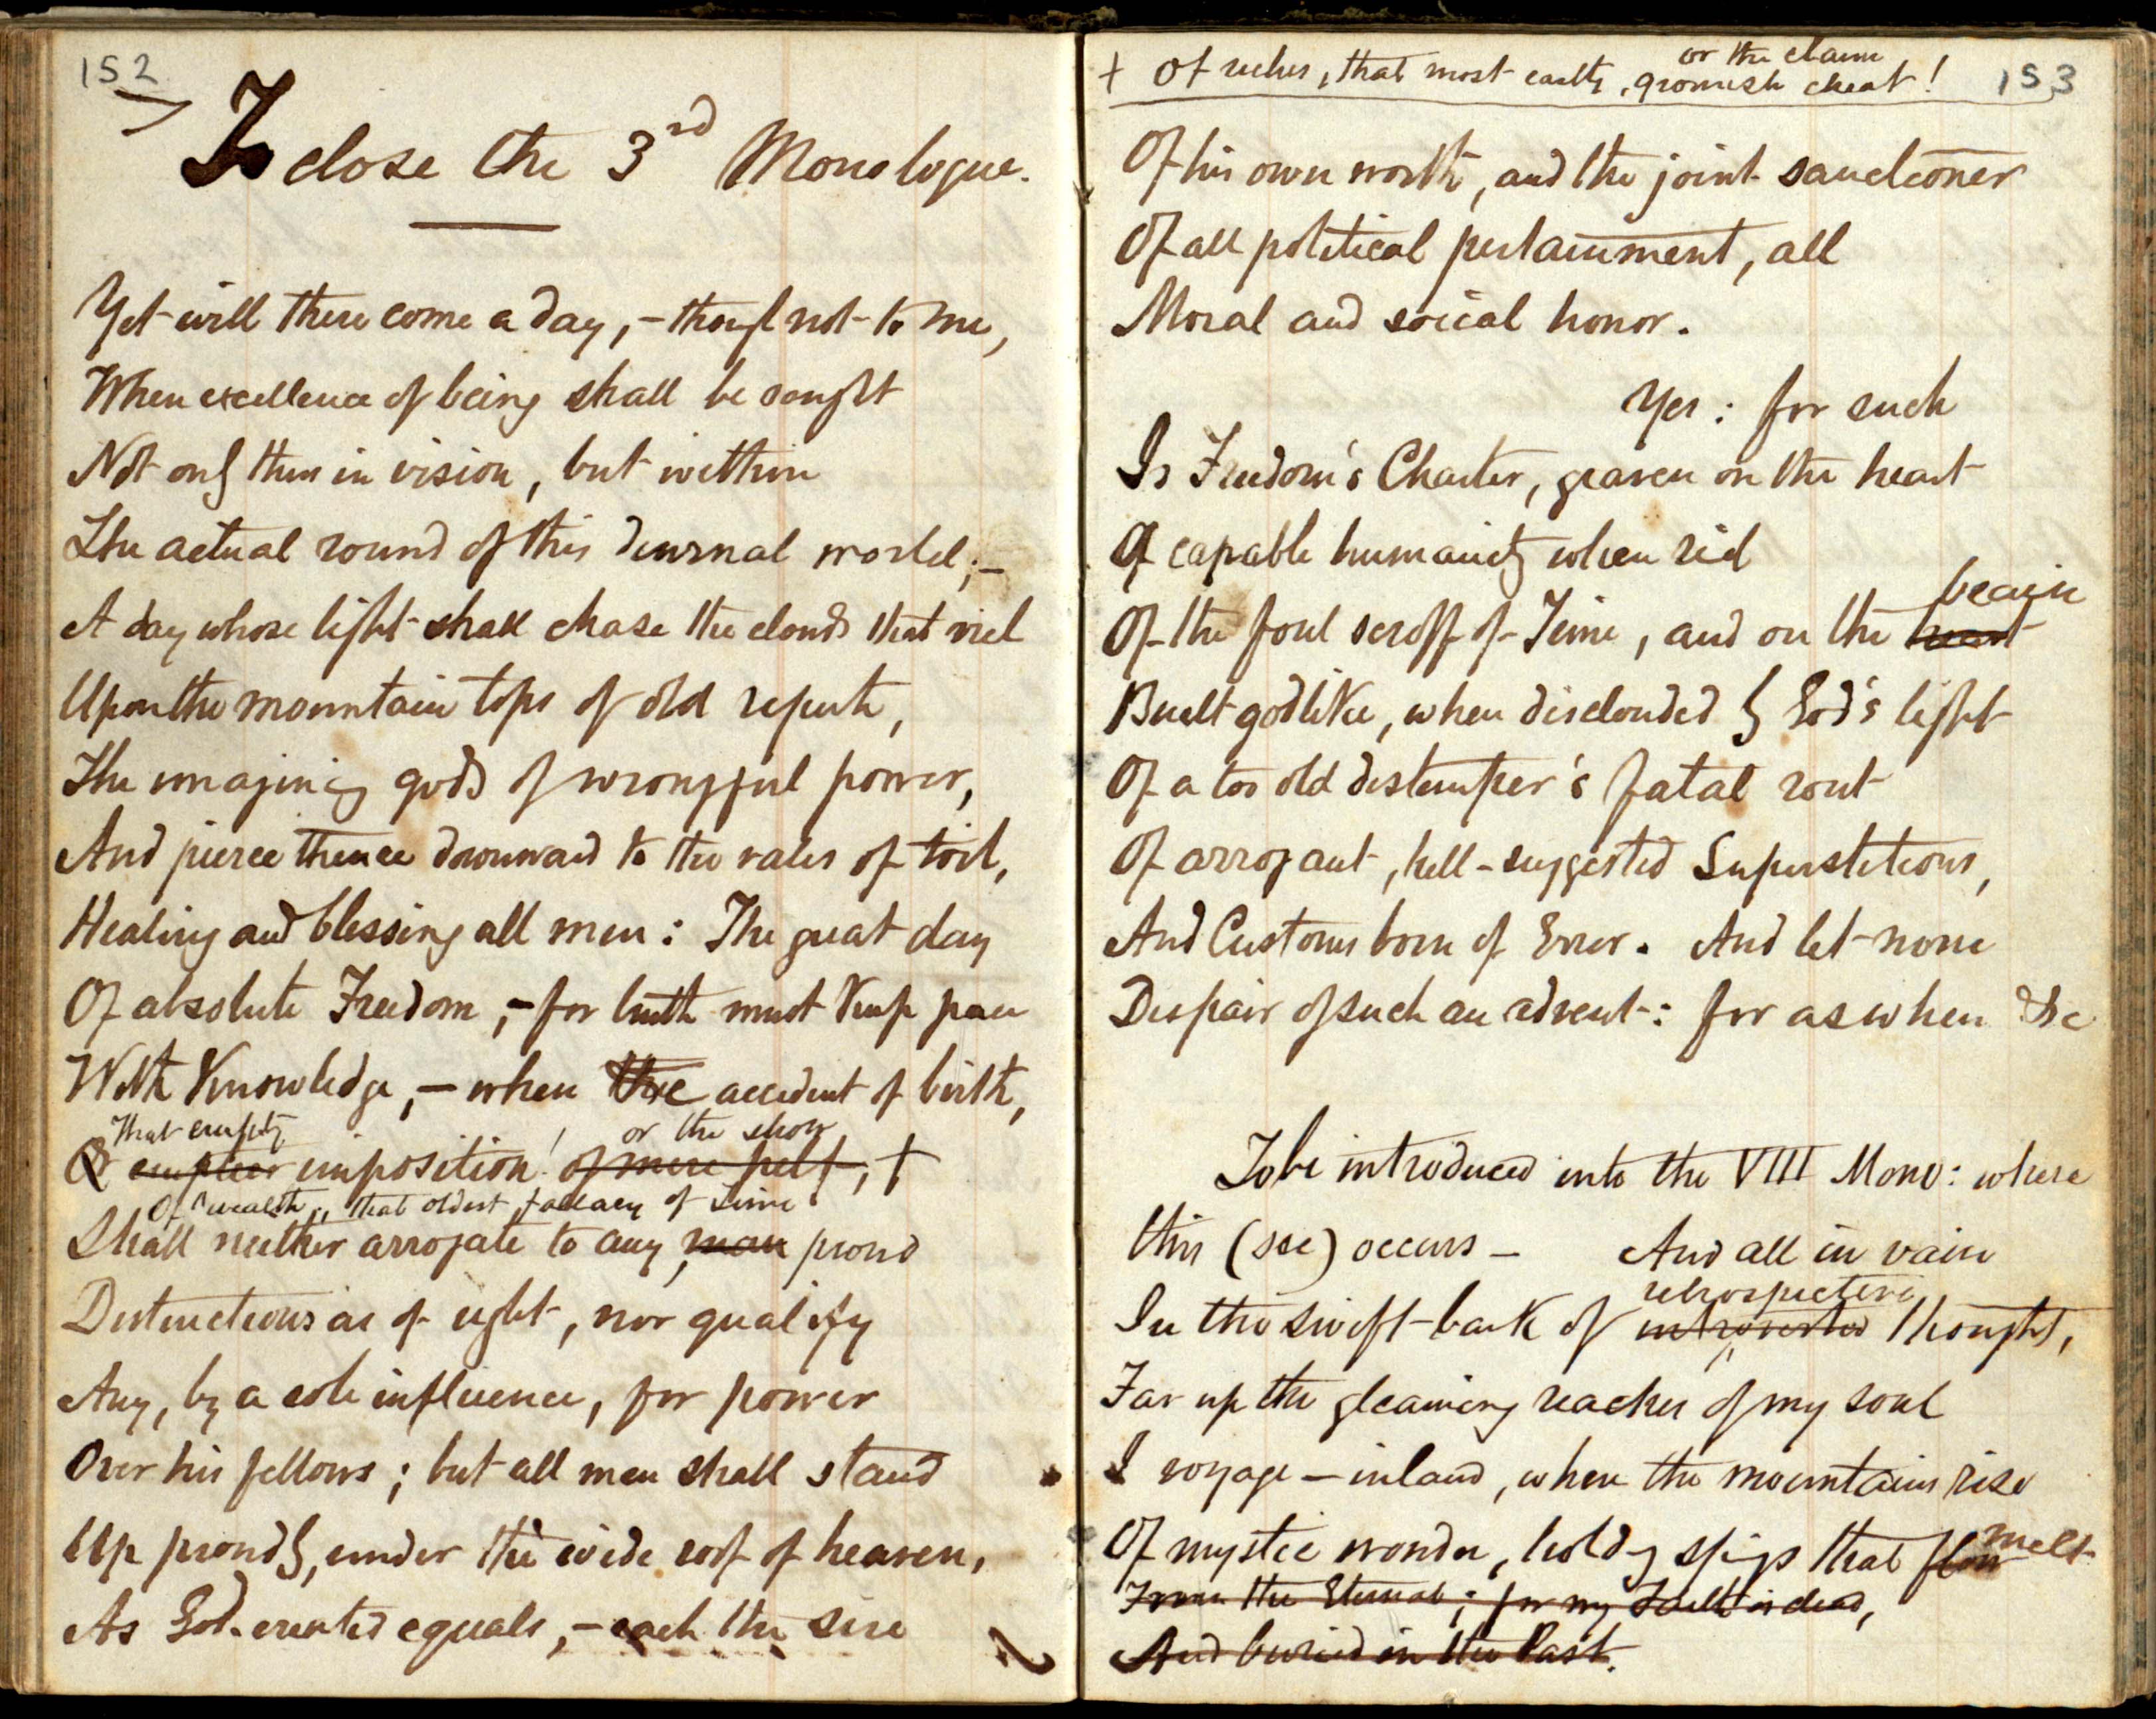 152
To close the 3rd Monologue.
Yet will there come a day, – though not to me,
When excellence of being shall be sought
Not only thus in vision, but within
The actual round of this diurnal world; –
A day whose light shall chase the clouds that veil
Upon the mountain tops of old repute,
The imagining gods of wrongful power,
And pierce thence downward to the vales of toil,
Healing and blessing all men: The great day
Of absolute Freedom, – for truth must keep pace
With Knowledge, – when the accident of birth,
That empty or the show
Or emptier imposition! of mere pelf, +
Of wealth, that oldest fallacy of Time
Shall neither arrogate to any, man proud
Distinctions as of right, nor qualify
Any, by a sole influence, for power
Over his fellows; but all men shall stand
Up proudly, under the wide roof of heaven,
As God-created equals, – each the sire
153
or the claim
+ Of riches, that most earthy, gnomish cheat!
Of his own worth, and the joint sanctioner
Of all political pertainment, all
Moral and social honor.
Yes: for such
Is Freedom's Charter, graven on the heart
Of capable humanity when rid
brain
Of the foul scroff of Time, and on the heart
Built godlike, when disclouded by God's light
Of a too old distemper's fatal rout
Of arrogant, hell-suggested Superstitions,
And Customs born of Error. And let none
Despair of such an advent: for as when &c
To be introduced into the VIII Mono: where
this (see) occurs – And all in vain
retrospective
In the swift bark of introverted thought,
Far up the gleaming reaches of my soul
I voyage – inland, where the mountains rise
melt
Of mystic wonder, holdg spings that flow
From the Eternal; for my Faith is dead,
And buried in the Past.